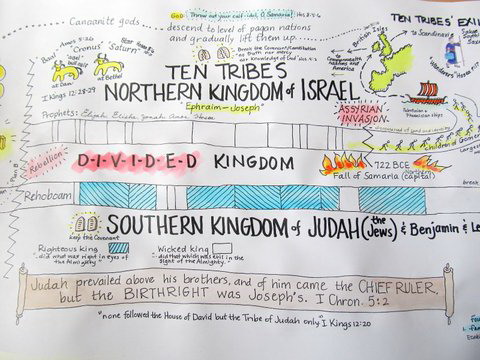 GOD: Throw out your calf-idol, O Samaria! Hos 8:4-6
Canaanite gods
descend to level of pagan nations
and gradually lift them up...
TEN TRIBES' EXIL
British Isles
to Scandinavia
Baal
Amos 5:26
"Cronus"
"Saturn"
at Dan
at Bethel
I Kings 12:28-29
TEN TRIBES
NORTHERN KINGDOM of ISRAEL
"Ephraim-Joseph"
Prophets: Elijah Elisha Jonah Amos Hosea
ASSYRIAN
INVASION
to Commonwealth
Rebellion
D-I-V-I-D-E-D KINGDOM
722 BCE
Fall of Samaria (capital)
Northern
break
Rehoboam
SOUTHERN KINGDOM of JUDAH (the Jews) & Benjamin & Le
Keep the Covenant
Righteous king
..did what was right in eyes of the Almighty"
Wicked king
..did that which was evil in the sight of the Almighty."
Judah prevailed above his brothers, and of him came the CHIEF RULER,
but the BIRTHRIGHT was Joseph's. I Chron. 5:2
"none followed the House of David but the Tribe of Judah only" I Kings 12:20